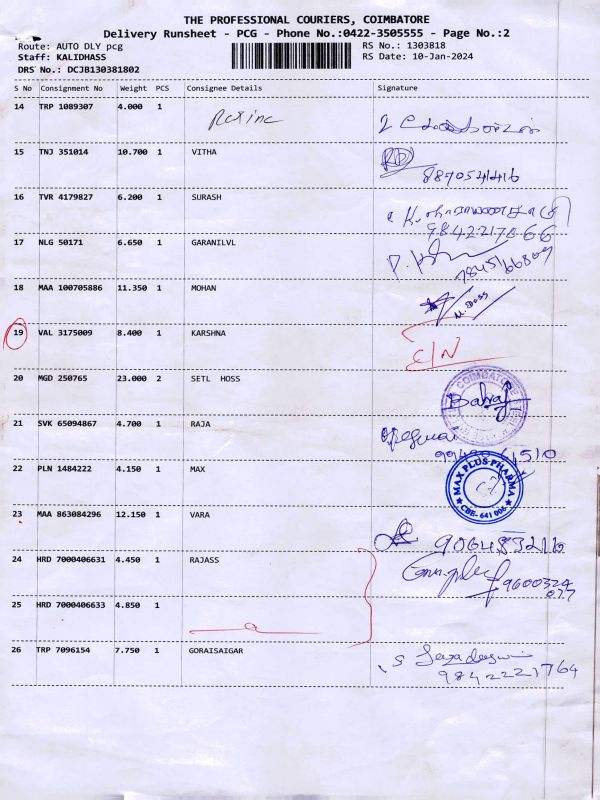 THE PROFESSIONAL COURIERS, COIMBATORE
Delivery Runsheet - PCG - Phone No.:0422-3505555 - Page No.:2
Route: AUTO DLY pcg RS No.: 1303818
Staff: KALIDHASS RS Date: 10-Jan-2024
DRS No.: DCJB130381802
S No Consignment No Weight PCS Consignee Details Signature
14 TRP 1089307 4.000 1 Rexine
15 TNJ 351014 10.700 1 VITHA
8870541416
16 TVR 4179827 6.200 1 SURASH
9842217866
17 NLG 50171 6.650 1 GARANILVL
7845166809
18 MAA 100705886 11.350 1 MOHAN M. Doss
19 VAL 3175009 8.400 1 KARSHNA C/N
20 MGD 250765 23.000 2 SETL HOSS COIMBATORE
Balraj
21 SVK 65094867 4.700 1 RAJA
22 PLN 1484222 4.150 1 MAX MAX PLUS PHARMA
CBE- 641 006
23 MAA 863084296 12.150 1 VARA
24 HRD 7000406631 4.450 1 RAJASS
9600324
077
25 HRD 7000406633 4.850 1
26 TRP 7096154 7.750 1 GORAISAIGAR
9842221764